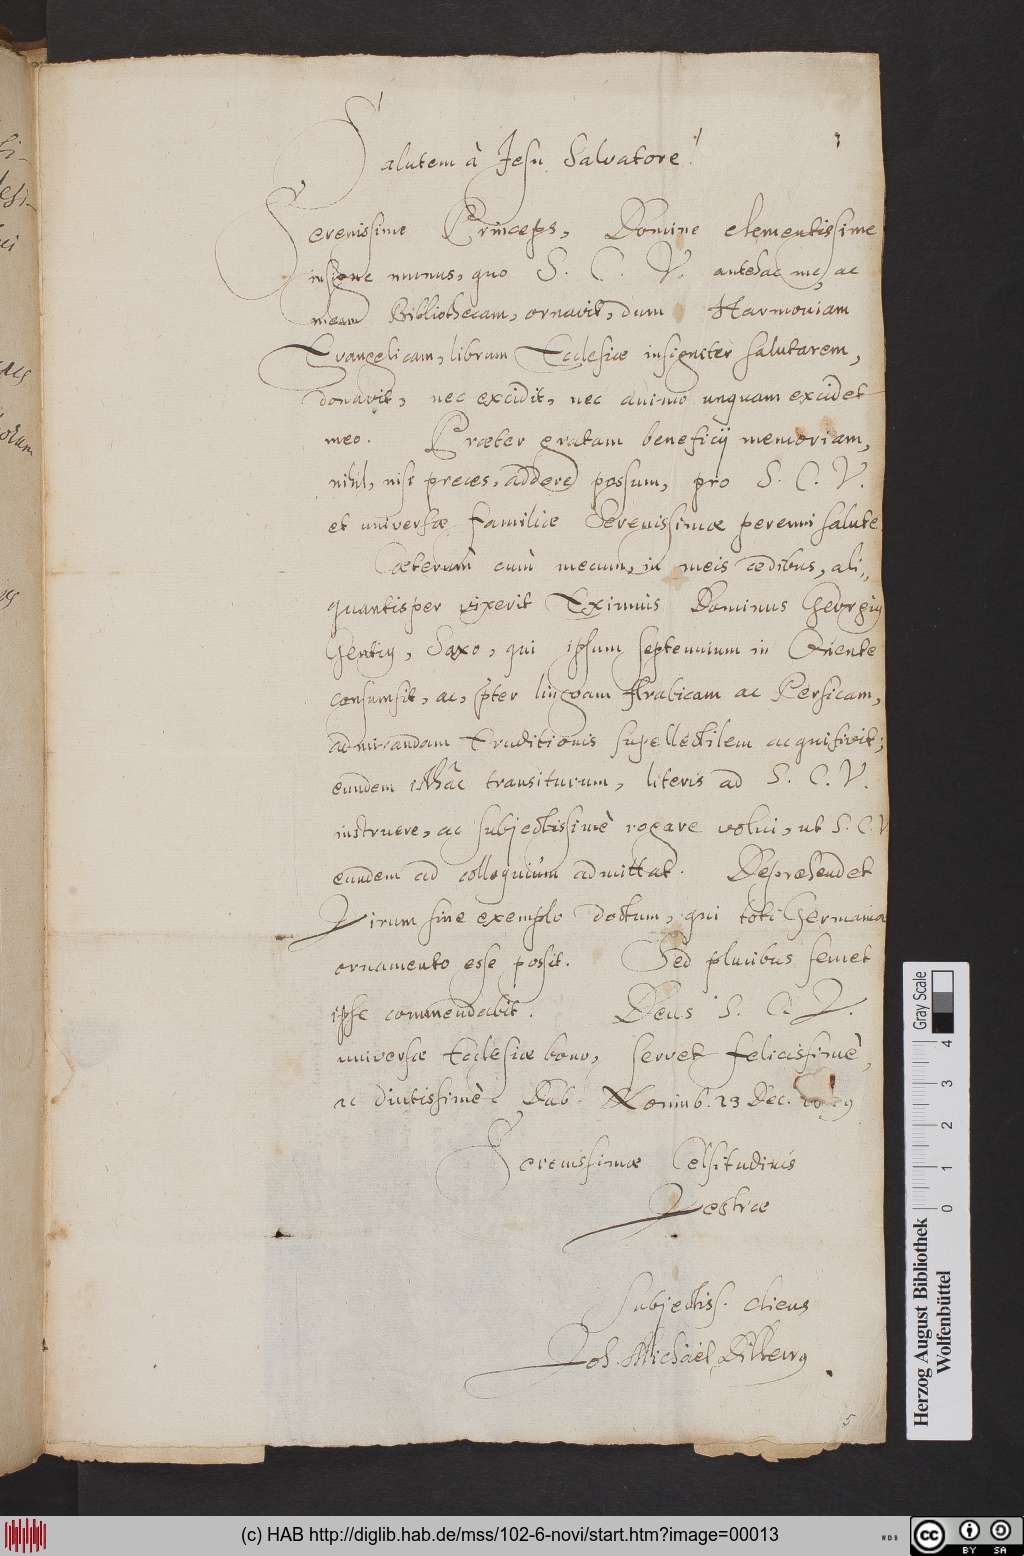 Salutem à Jesu Salvatore!
Serenissime Princeps, Domine clementissime
insigne munus, quo S. C. V. antehac me, ac
meam Bibliothecam, ornavit, dum Harmoniam
Evangelicam, librum Ecclesiæ insigniter salutarem,
donavit, nec excidit, nec animo unquam excidet
meo. Præter gratam beneficij memoriam,
nihil, nisi preces, addere possum, pro S. C. V.
et universæ familiæ Serenissimæ perenni salute
Cæterum cùm mecum, in meis ædibus, ali„
quantisper vixerit Eximius Dominus Georgius
Gentius, Saxo, qui ipsum septennium in Oriente
consumsit, ac, præter linguam Arabicam ac Persicam,
admirandam Eruditionis supellectilem acquisivit;
eundem isthâc transiturum, literis ad S. C. V.
instruere, ac subjectissimè rogare volui, ut S. C. V
eundem ad colloquium admittat. Deprehendet
Virum sine exemplo doctum, qui toti Germaniæ
ornamento esse possit. Sed pluribus semet
ipse commendabit. Deus S. C. V.
universæ Ecclesiæ bono, servet felicissimè,
ac diutissimè. Dab. Norimb. 23 Dec.
Serenissimæ Celsitudinis
Vestræ
subjectiss. cliens
Joh. Michaël Dilherrus
5
ci
Herzog August Bibliothek
Wolfenbüttel
Gray Scale
0 1 2 3 4
(c) HAB http://diglib.hab.de/mss/102-6-novi/start.htm?image=00013
WDB
cc BY SA